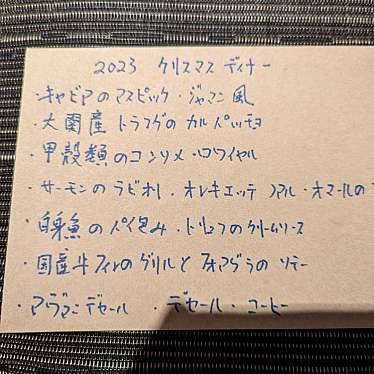 2023 クリスマス ディナー
・キャビアのアスピック・ジャマン風
・大間産 トラフグの カルパッチョ
・甲殻類のコンソメ・ロワイヤル
・サーモンのラビオリ・オレキエッテ オマールの
・白身魚のパイ包み・トリュフのクリームソース
・国産牛フィレのグリルとフォアグラの ソテー
・アヴァンデセール デセール・コーヒー